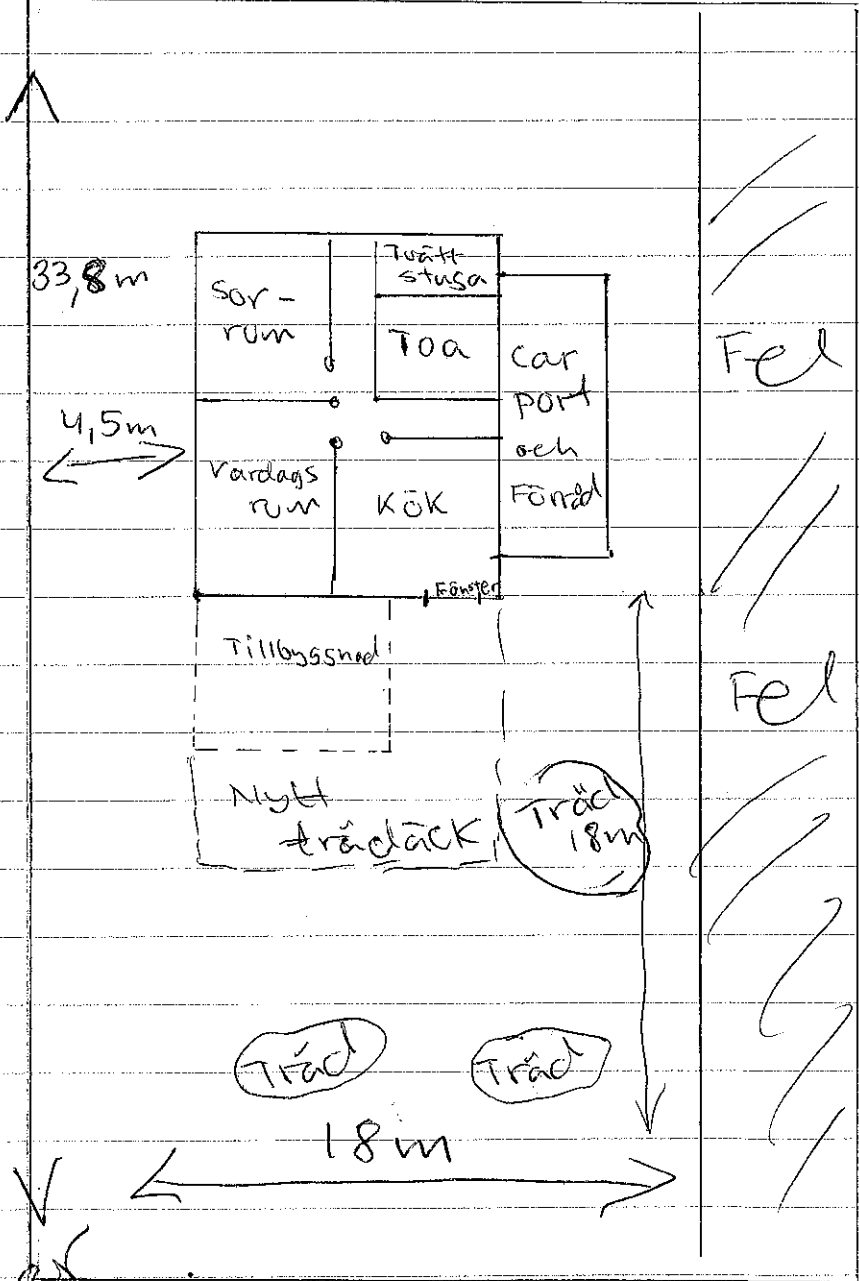 33,8m
Sov-
rum
Tvätt
stuga
Toa
car
port
och
Förråd
Fel
4,5m
Vardags
rum
Kök
Fönster
Tillbyggnad
Fel
Nytt
trädäck
Träd
18m
Träd
Träd
18m